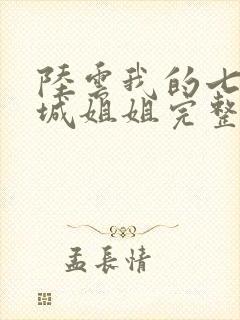 陸雲我的七
城姐姐完整
孟長情